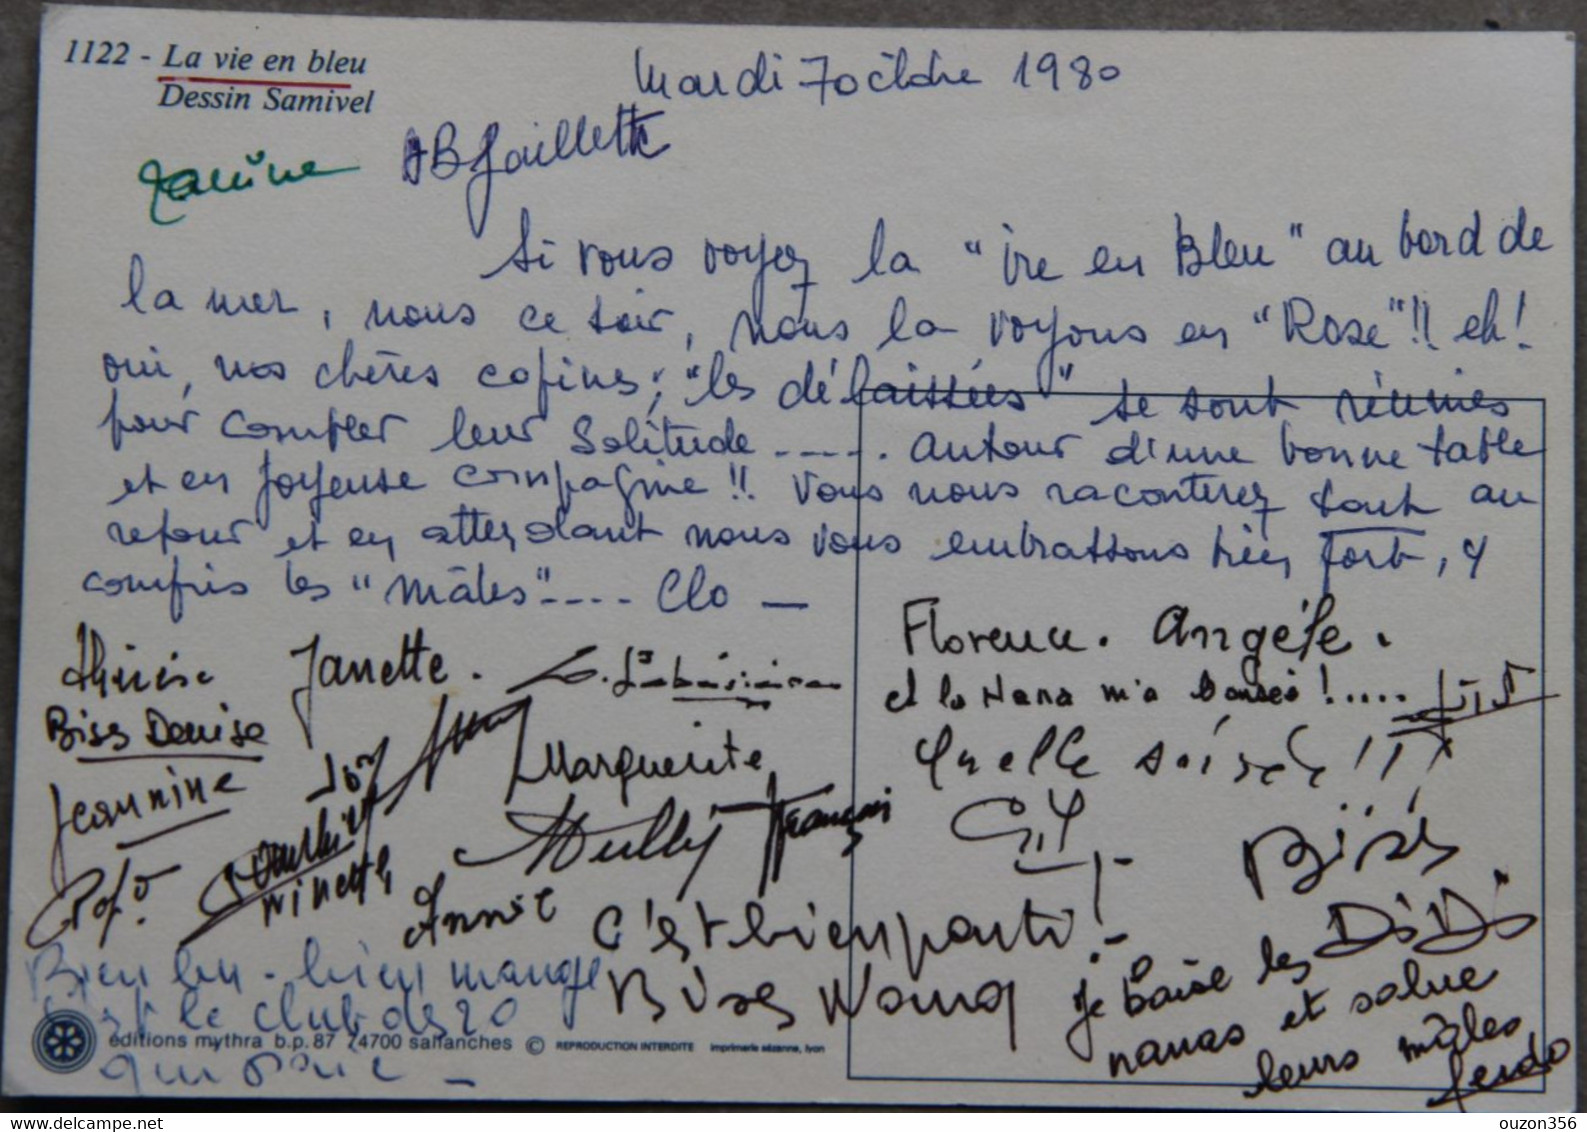 1122 - La vie en bleu
Dessin Samivel
Mardi 7 octobre 1980
Janine
Si vous voyez la "vie en Bleu" au bord de
la mer, nous ce soir, nous la voyons en "Rose"!! eh!
oui, nos chères copines, "les délaissées" se sont réunies
pour combler leur solitude ----- autour d'une bonne table
et en joyeuse compagnie !! Vous nous raconterez tout au
retour et en attendant nous vous embrassons très fort, y
compris les "mâles"---- Clo —
Thérèse Janette.
Florence. Angèle.
Bises Denise
et la Nana m'a
Quelle soirée !!!
Jeannine
Marguerite
François
Ginette
Annie
Bises
C'est bien parti !
Bises
Bien bu - bien mangé
le club des 20
qui
je baise les DiDi
nanas et salue
leurs mâles
ferdo
éditions mythra b.p. 87 74700 sallanches © REPRODUCTION INTERDITE imprimerie sézanne, lyon
ouzon356